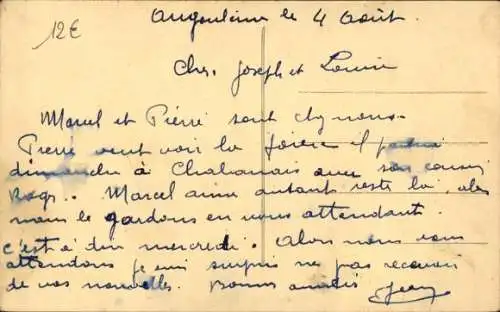 12€
Angoulême le 4 Août.
Cher Joseph et Louise
Marcel et Pierre sont chez nous.
Pierre veut voir la foire il
dimanche à Chabanais avec son cousin
Marcel aime autant reste la, alors
nous le gardons en vous attendant.
c'est à dire mercredi. Alors nous vous
attendons je suis surpris ne pas recevoir
de vos nouvelles. Bonnes amitiés
Jean